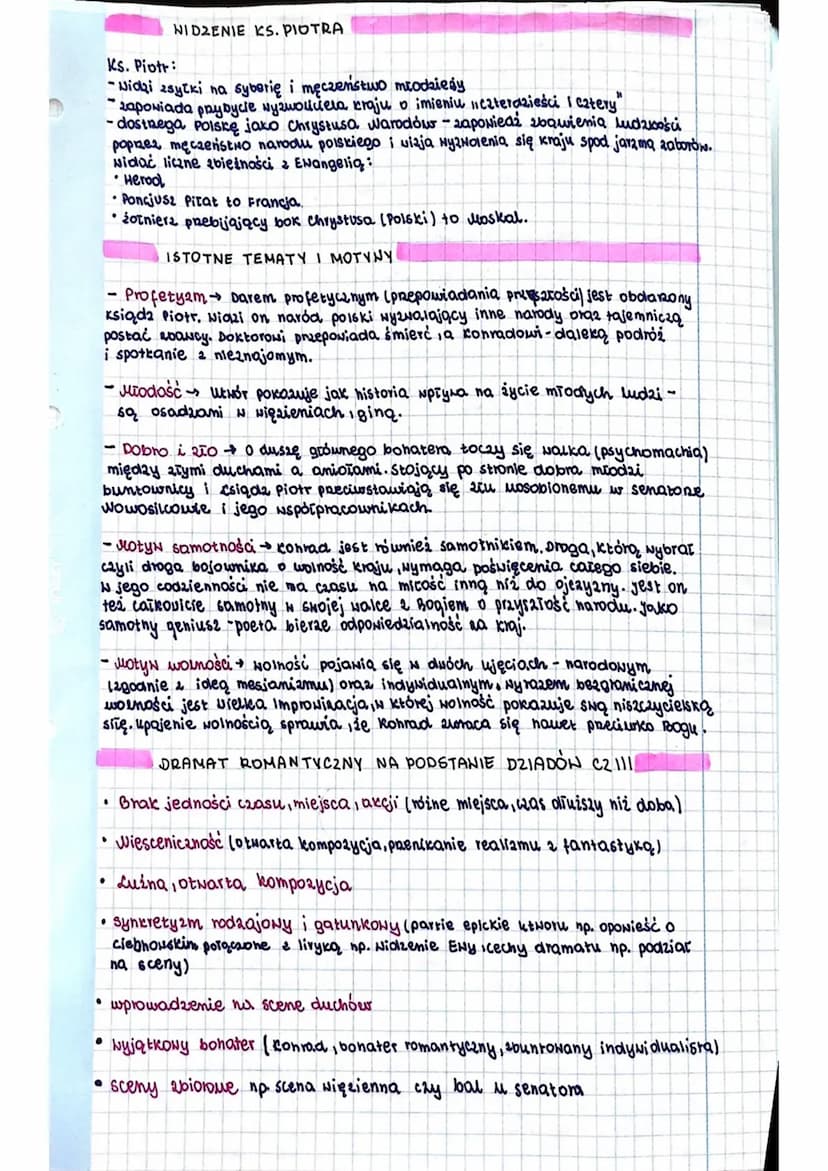 WIDZENIE KS. PIOTRA
Ks. Piotr:
- widzi zsyłki na Syberię i męczeństwo młodzieży
- zapowiada przybycie wyzwoliciela kraju o imieniu "czterdzieści i cztery"
- dostrzega Polskę jako Chrystusa Narodów - zapowiedź zbawienia ludzkości
poprzez męczeństwo narodu polskiego i wizja wyzwolenia się kraju spod jarzma zaborów.
widać liczne zbieżności z Ewangelią:
• Herod
• Poncjusz Piłat to Francja
• żołnierz przebijający bok Chrystusa (Polski) to Moskal.
ISTOTNE TEMATY I MOTYWY
- Profetyzm → Darem profetycznym (przepowiadania przyszłości) jest obdarzony
ksiądz Piotr. Widzi on naród polski wyzwalający inne narody oraz tajemniczą
postać zbawcy. Doktorowi przepowiada śmierć, a Konradowi - daleką podróż
i spotkanie z nieznajomym.
- Młodość → utwór pokazuje jak historia wpływa na życie młodych ludzi -
są osadzani w więzieniach, giną.
- Dobro i zło → O duszę głównego bohatera toczy się walka (psychomachia)
między złymi duchami a aniołami. Stojący po stronie dobra młodzi
buntownicy i ksiądz Piotr przeciwstawiają się złu uosobionemu w senatorze
Nowosilcowie i jego współpracownikach.
- Motyw samotności → Konrad jest również samotnikiem. Droga, którą wybrał
czyli droga bojownika o wolność kraju, wymaga poświęcenia całego siebie.
W jego codzienności nie ma czasu na miłość inną niż do ojczyzny. Jest on
też całkowicie samotny w swojej walce z Bogiem o przyszłość narodu. Jako
samotny geniusz - poeta bierze odpowiedzialność za kraj.
- Motyw wolności → wolność pojawia się w dwóch ujęciach - narodowym
(zgodnie z ideą mesjanizmu) oraz indywidualnym. Wyrazem bezgranicznej
wolności jest Wielka Improwizacja, w której wolność pokazuje swą niszczycielską
siłę. Upojenie wolnością sprawia, że Konrad zwraca się nawet przeciwko Bogu.
DRAMAT ROMANTYCZNY NA PODSTAWIE DZIADÓW CZ III
• Brak jedności czasu, miejsca, akcji (różne miejsca, czas dłuższy niż doba)
• Niesceniczność (otwarta kompozycja, przenikanie realizmu z fantastyką)
• Luźna, otwarta kompozycja
• synkretyzm rodzajowy i gatunkowy (partie epickie utworu np. opowieść o
Cichowskim połączone z liryką np. Widzenie Ewy i cechy dramatu np. podział
na sceny)
• wprowadzenie na scene duchów
• wyjątkowy bohater (Konrad, bohater romantyczny, zbuntowany indywidualista)
• sceny zbiorowe np scena więzienna czy bal u senatora